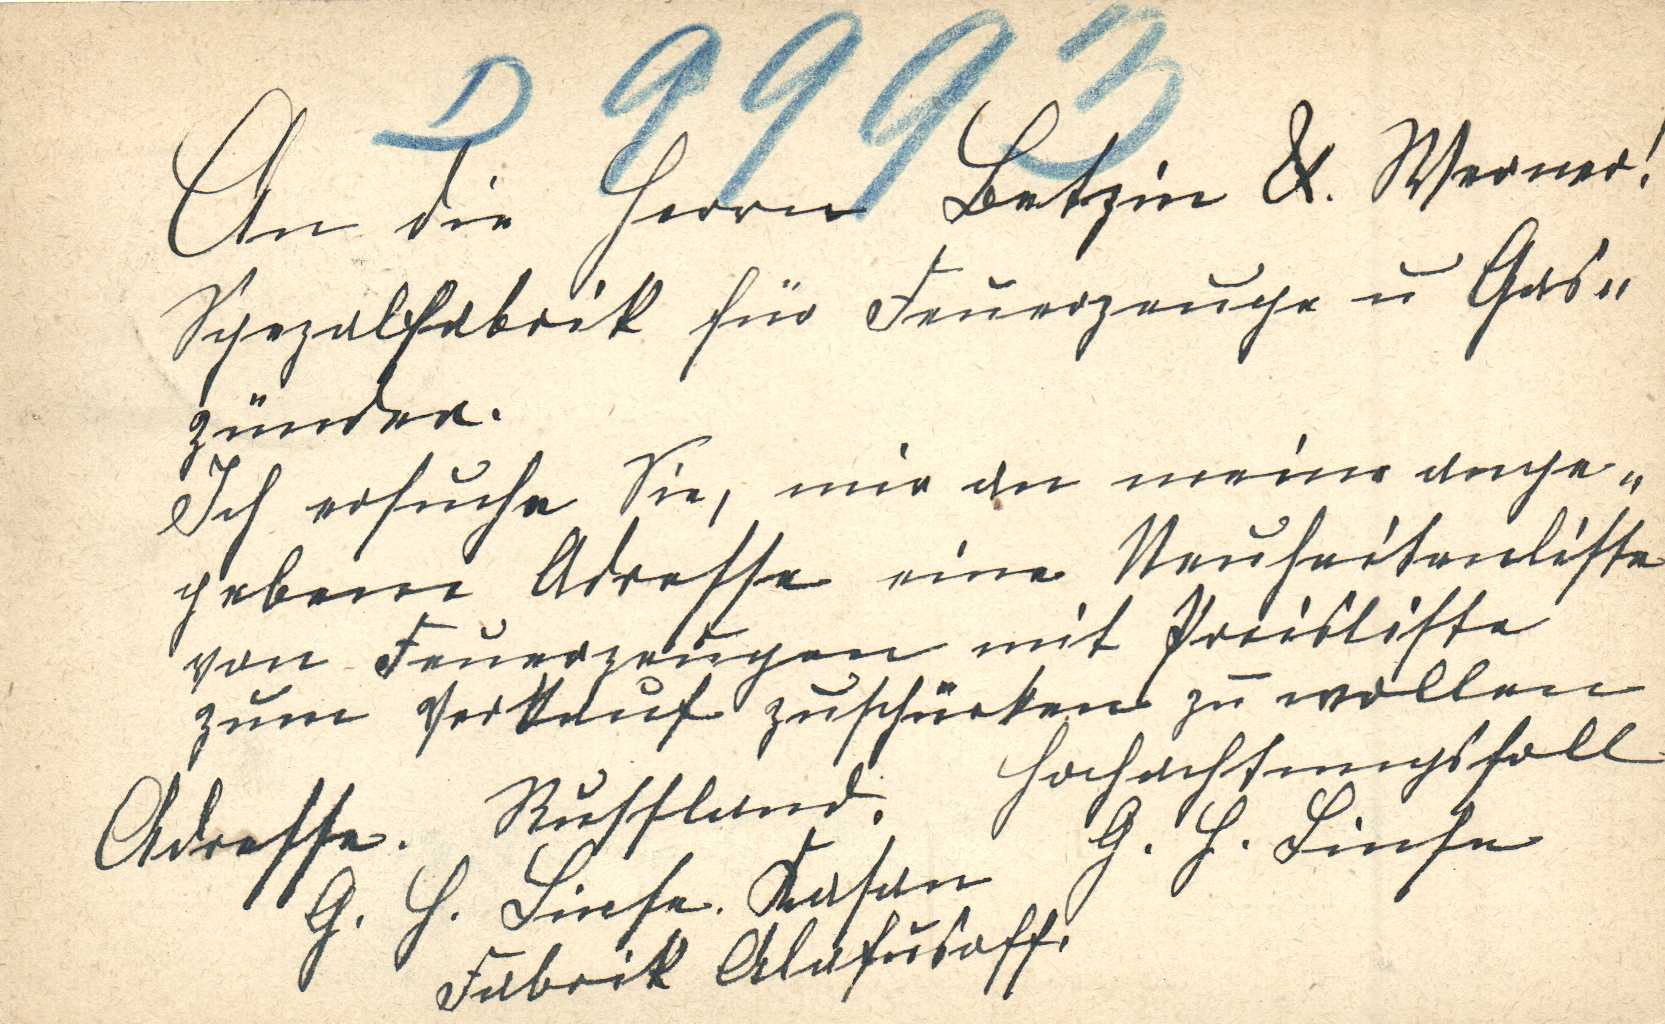 D 9993
An die Herrn Betzin &. Werner!
Spezalfabrik für Feuerzeuge u Gas„
zünder.
Ich ersuche Sie, mir an meine ange„
gebene Adresse eine Neuheitenliste
von Feuerzeugen mit Preisliste
zum Verkauf zuschürken zu wollen
Hochachtungsfoll
Adresse. Russland.
G. H. Linse
G. H. Linse. Kasan
Fabrik Alafusoff.